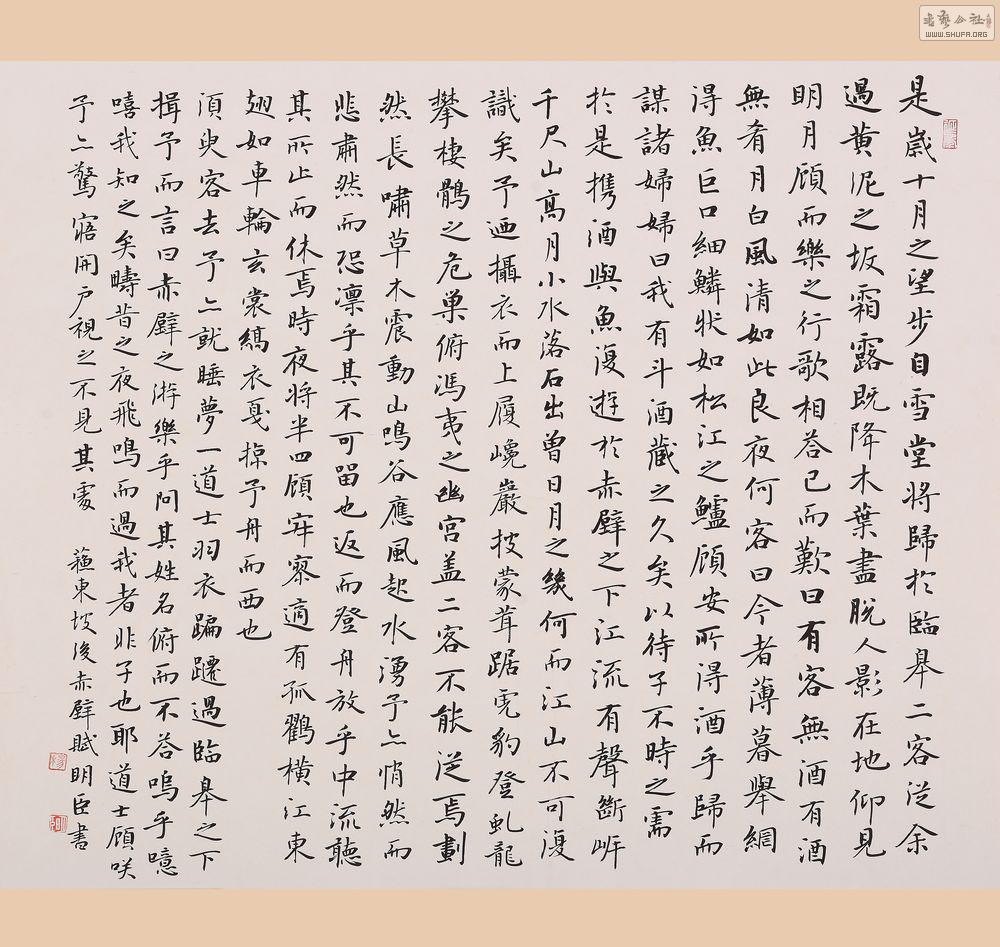 是歲十月之望步自雪堂將歸於臨皋二客從余
過黃泥之坂霜露既降木葉盡脫人影在地仰見
明月顧而樂之行歌相答已而歎曰有客無酒有酒
無肴月白風清如此良夜何客曰今者薄暮舉網
得魚巨口細鱗狀如松江之鱸顧安所得酒乎歸而
謀諸婦婦曰我有斗酒藏之久矣以待子不時之需
於是攜酒與魚復遊於赤壁之下江流有聲斷岸
千尺山高月小水落石出曾日月之幾何而江山不可復
識矣予迺攝衣而上履巉巖披蒙茸踞虎豹登虬龍
攀棲鶻之危巢俯馮夷之幽宮蓋二客不能從焉劃
然長嘯草木震動山鳴谷應風起水湧予亦悄然而
悲肅然而恐凜乎其不可留也返而登舟放乎中流聽
其所止而休焉時夜將半四顧寂寥適有孤鸛橫江東
翅如車輪玄裳縞衣戛掠予舟而西也
須臾客去予亦就睡夢一道士羽衣蹁躚過臨皋之下
揖予而言曰赤壁之游樂乎問其姓名俯而不答嗚乎噫
嘻我知之矣疇昔之夜飛鳴而過我者非子也耶道士顧笑
予亦驚寤開戶視之不見其處
蘇東坡後赤壁賦明臣書
WWW.SHUFA.ORG